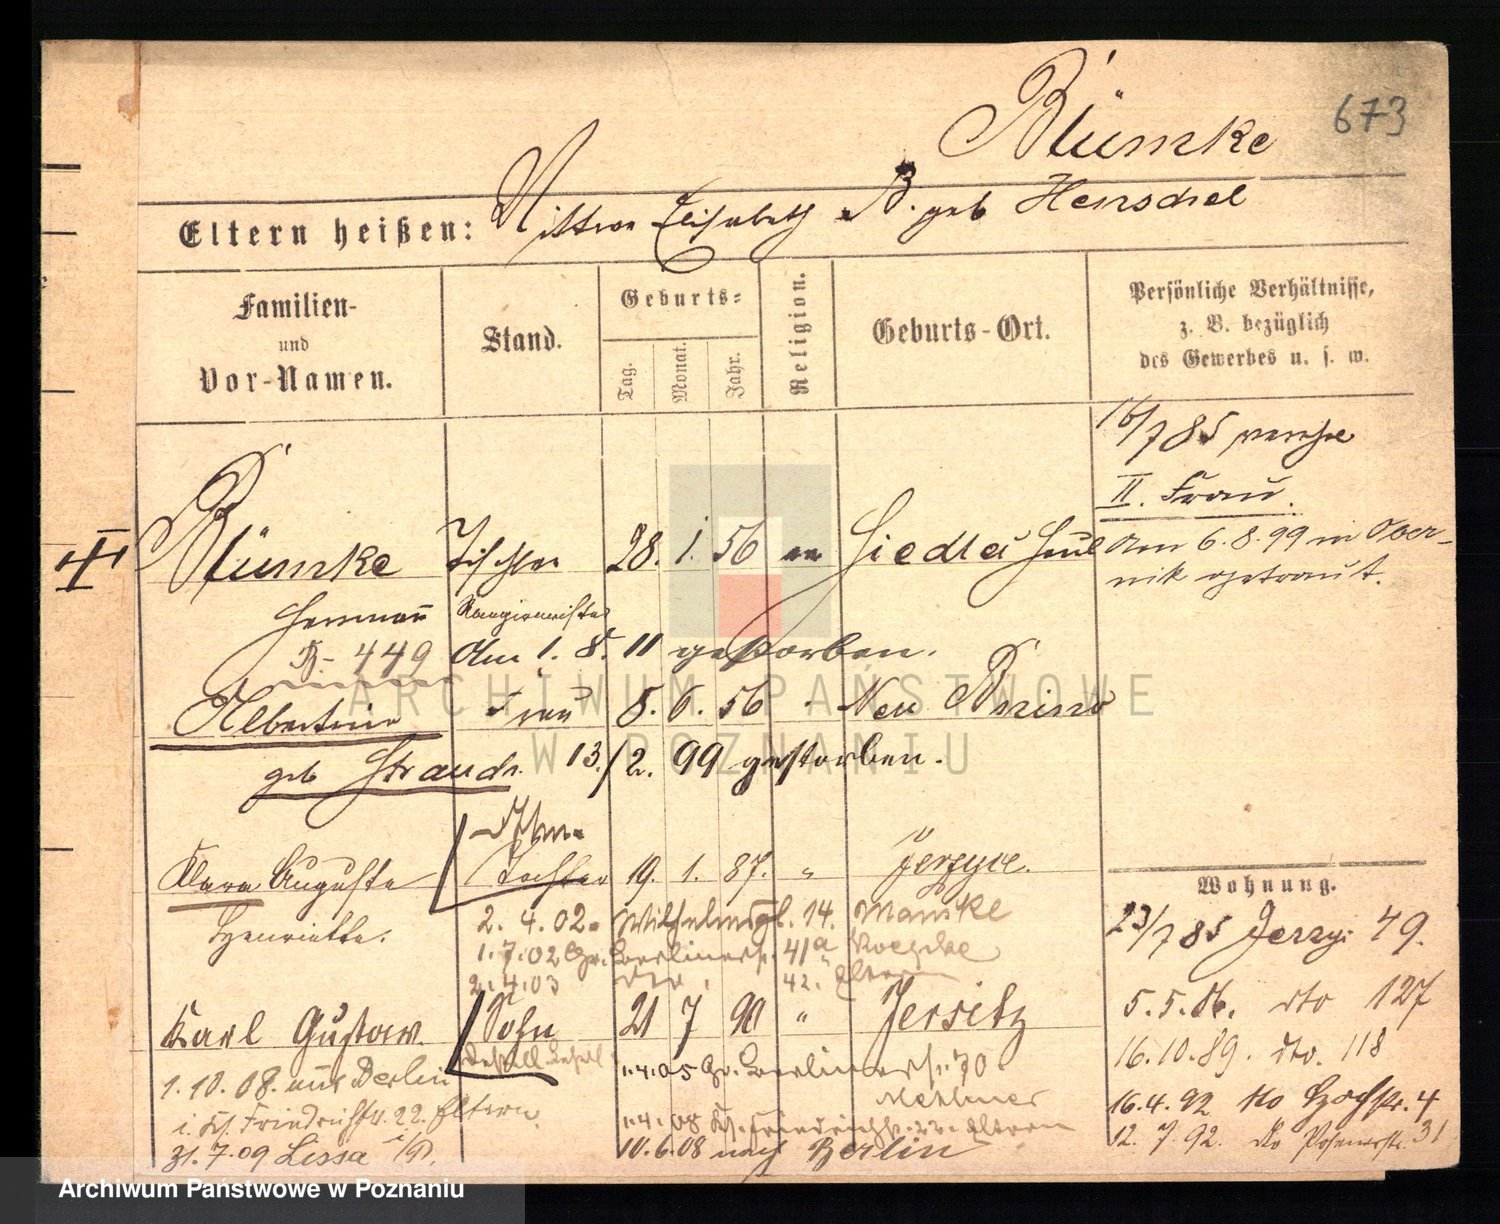 673
Blümke
Eltern heißen: Wittwe Elisabeth B. geb Henschel
Familien-
und
Vor-Namen.
Stand.
Geburts-
Tag.
Monat.
Jahr.
Religion.
Geburts-Ort.
Persönliche Verhältnisse,
z. B. bezüglich
des Gewerbes u. s. w.
16/7 85
II. Frau.
Am 6.8.99 in Ober-
nik getraut.
III
Blümke Tischler 28. 1. 56 ev
Hermann Rangiermeister
B.- 449 Am 1. 8. 11 gestorben.
Albertine Frau 8. 6. 56 Neu
geb Strauch. 13./2. 99 gestorben.
Klara Auguste Tochter 19. 1. 87. " Jerzyce.
Henriette.
2. 4. 02. 14. Manske
1.7.02 Gr. Berlinerstr. 41a
2.4.03 dto. 42. Eltern
Karl Gustav Sohn 21 7 90 " Jersitz
1.10.08. aus Berlin
1.4.05 Gr. Berlinerstr. 70
i. Kl. Friedrichstr. 22. Eltern
1.4.08 Kl. Friedrichstr. 22. Eltern
31.7.09 Lissa i/P.
10.6.08 nach Berlin
Wohnung.
23/7 85 Jerzyc 49.
5.5.86. dto 127
16.10.89. dto. 118
16.4.92 dto Hochstr. 4
12.7.92. dto Posenerstr. 31
ARCHIWUM PAŃSTWOWE
W POZNANIU
Archiwum Państwowe w Poznaniu